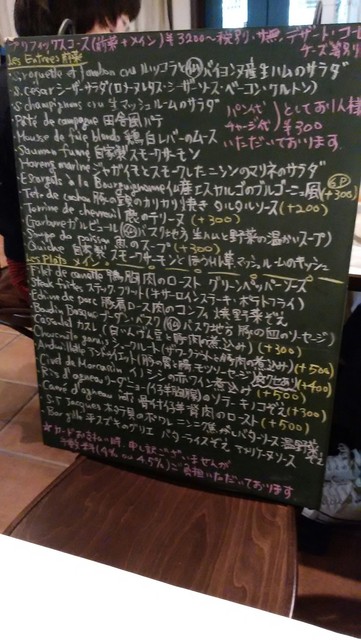 プリフィックスコース(前菜+メイン) ¥3200〜税別・サ無・デザート・コーヒー
ケース等別
Les Entrées 前菜
S. roquette et jambon cru ルッコラとバイヨンヌ産生ハムのサラダ
S. césar シーザーサラダ(ロメインレタス・シーザーソース・ベーコン・クルトン)
S. champignons cru 生マッシュルームのサラダ
Pâté de campagne 田舎風パテ
パン代チャージ代としてお1人様¥300いただいております
Mousse de foie blonds 鶏白レバーのムース
Saumon fumé 自家製スモークサーモン
Hareng mariné ジャガイモとスモークしたニシンのマリネのサラダ
Escargots à la Bourguignonne 仏産エスカルゴのブルゴーニュ風 6P (+300)
Tête de cochon 豚の頭のカリカリ焼き タルタルソース (+200)
Terrine de chevreuil 鹿のテリーヌ (+300)
Garbure ガルビュール (バスク地方 生ハムと野菜の温かいスープ)
Soupe de poisson 魚のスープ (+300)
Quiche 自家製スモークサーモンとほうれん草マッシュルームのキッシュ
Les Plats メイン
Filet de canette 鴨胸肉のロースト グリーンペッパーソース
Steak frites ステックフリット (牛サーロインステーキ・ポテトフライ)
Échine de porc 豚肩ロース肉のコンフィ 焼野菜ぞえ
Boudin Basque ブーダンバスク (バスク地方 豚の血のソーセージ)
Cassoulet カスレ (白いんげん豆と豚肉の煮込み) (+300)
Choucroute garnie シュークルート (ザワークラウトと豚肉の煮込み) (+500)
Andouillette アンドゥイエット (豚の胃と腸モツソーセージ) (+400)
Civet de Marcassin イノシシの赤ワイン煮込み (+500)
Ris d'agneau リ・ダニョー (仔羊胸腺)のソテー キノコぞえ (+300)
Carré d'agneau rôti 骨付仔羊背肉のロースト (+500)
S.t Jacques ホタテ貝のポワレ ニンニク焦がしバターソース 温野菜ぞえ
★カードでお支払い時、申し訳ございませんが
手数料(4%or4.5%)ご負担いただいております